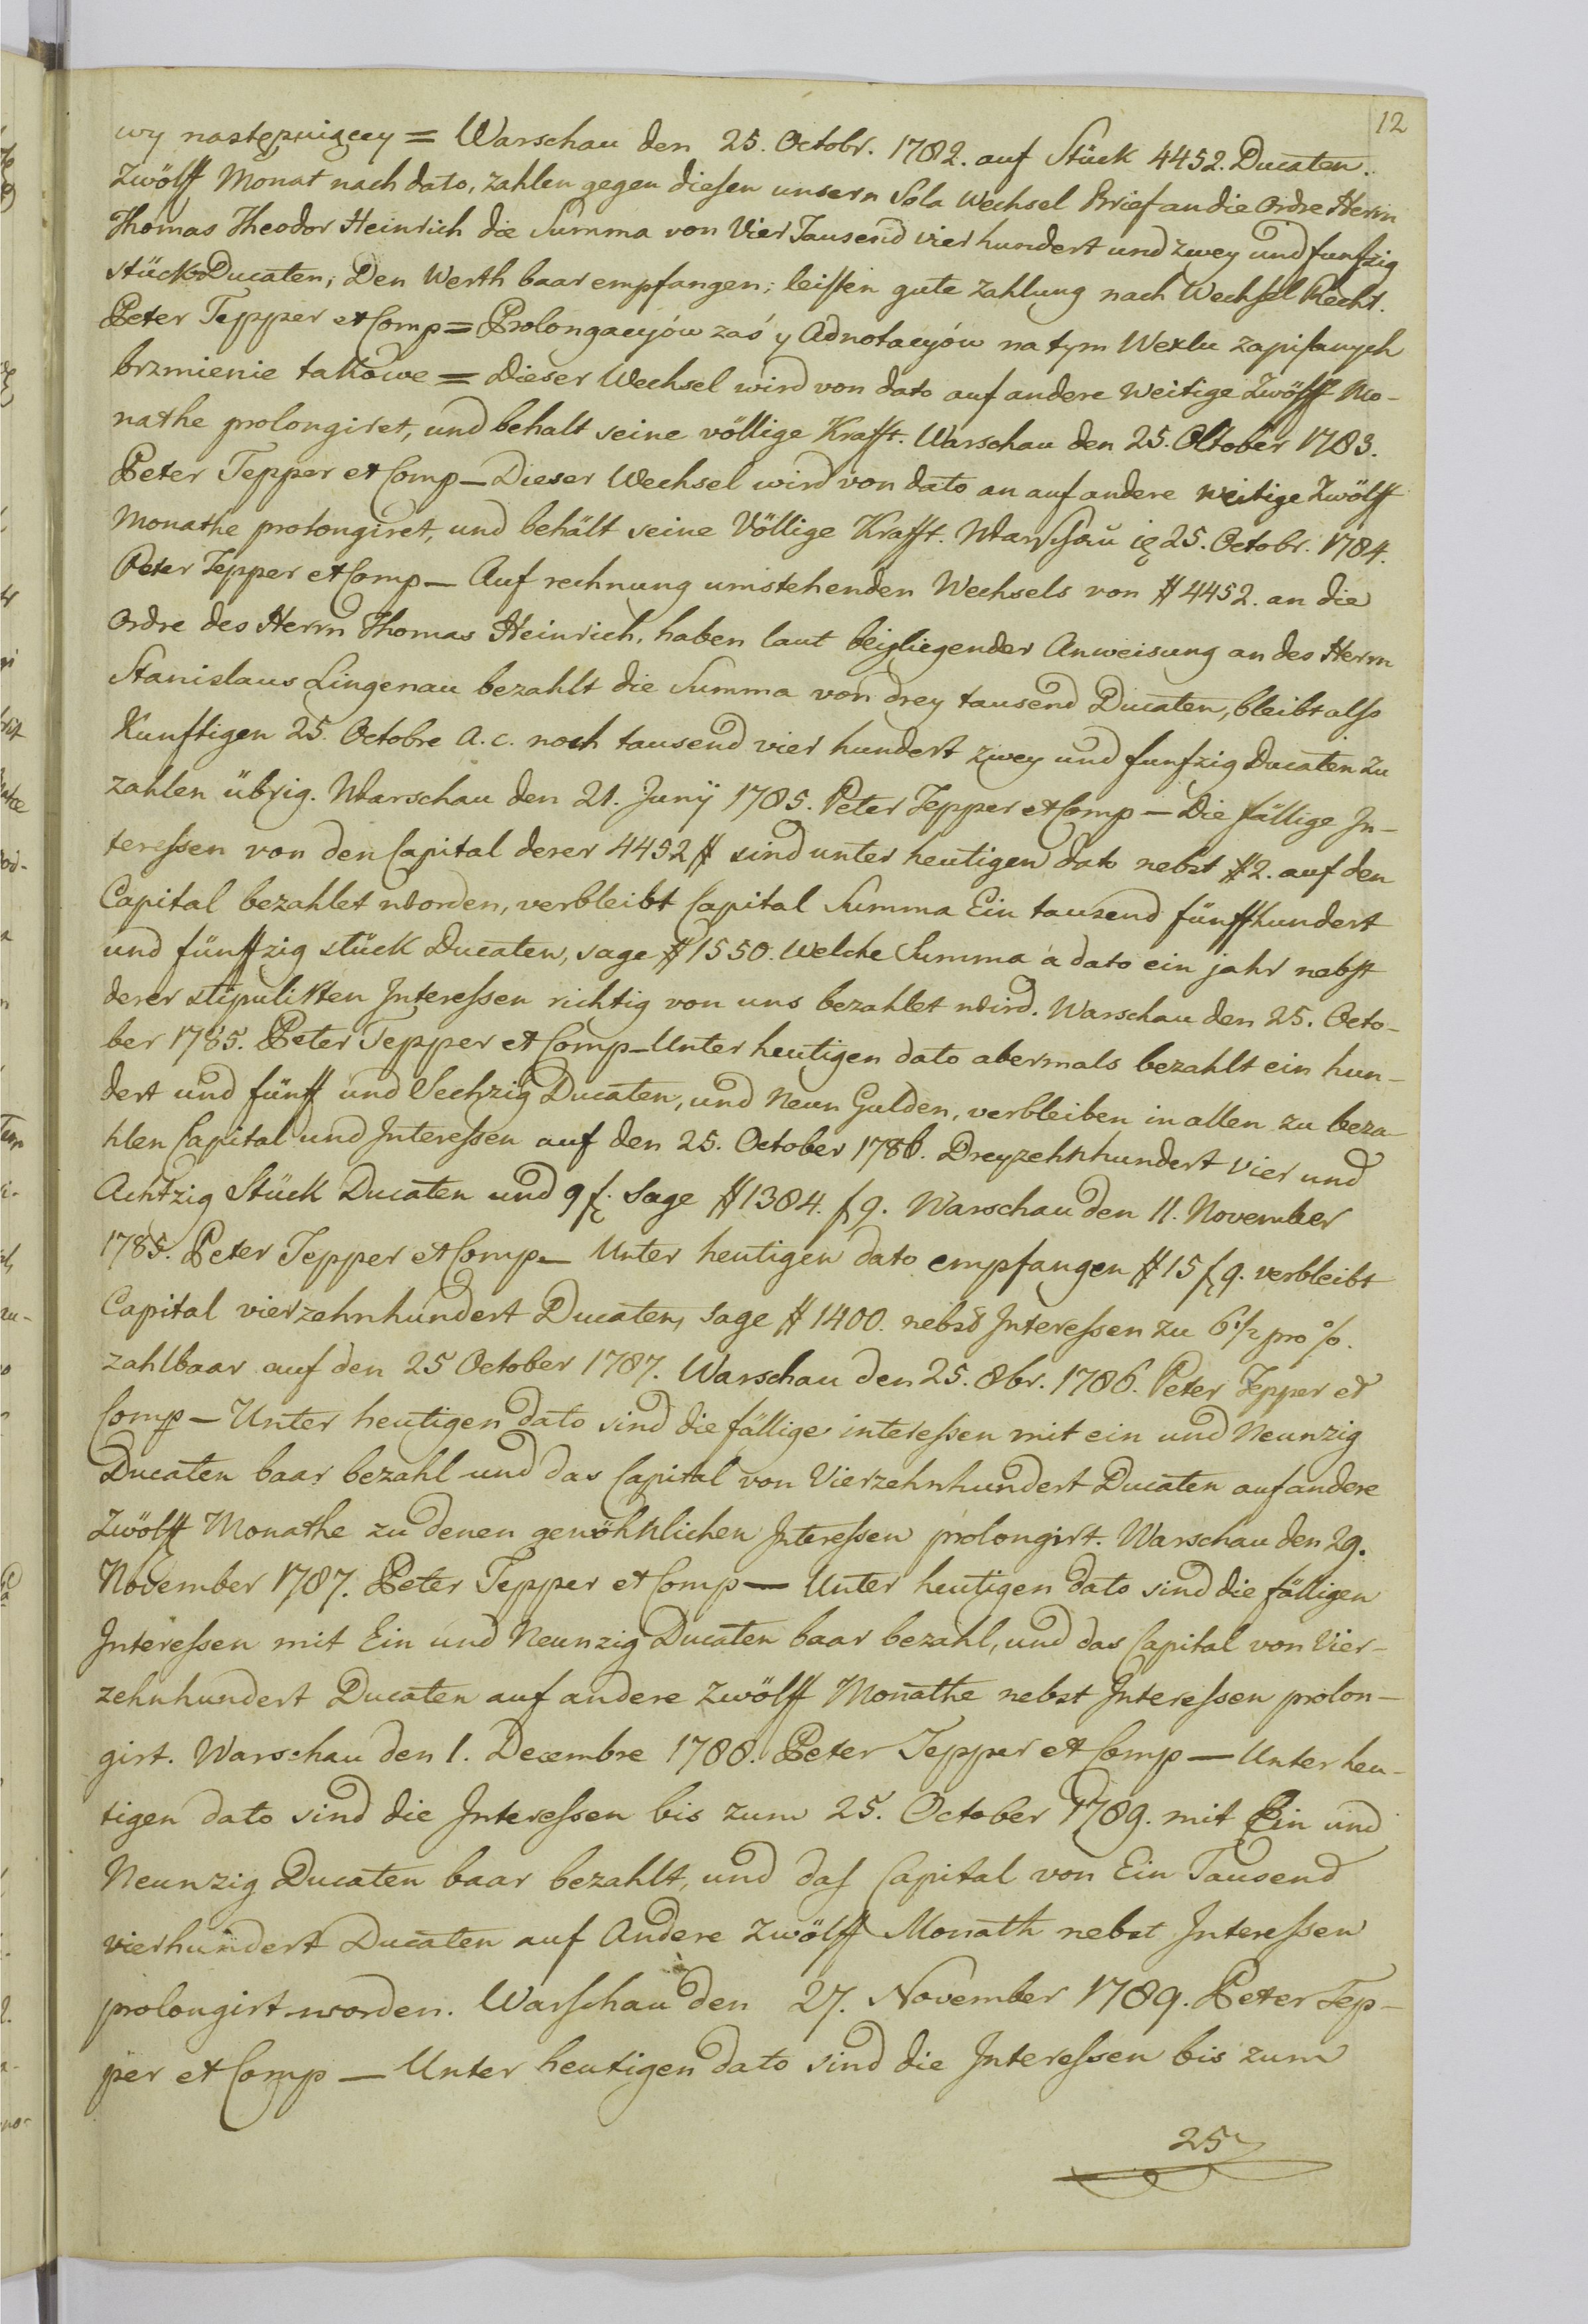 12
wy następuiącey = Warschau den 25. Octobr. 1782. auf Stück 4452. Ducaten.
Zwölff Monat nach dato, zahlen gegen diesen unsern Sola Wechsel Brief an die Ordre Herrn
Thomas Theodor Heinrich die Summa von Vier Tausend vier hundert und zwey und funfzig
stück Ducaten; Den Werth baar empfangen; leisten gute Zahlung nach Wechsel Recht.
Peter Tepper et Comp = Prolongacyów zaś y Adnotacyów na tym Wexlu zapisanych
brzmienie takowe = Dieser Wechsel wird von dato auf andere weitige Zwölff Mo-
nathe prolongiret, und behalt seine völlige Krafft. Warschau den 25. Oktober 1783.
Peter Tepper et Comp — Dieser Wechsel wird von dato an auf andere weitige Zwölff
Monathe prolongiret, und behält seine Völlige Krafft. Warschau 25. Octobr. 1784.
Peter Tepper et Comp — Auf rechnung umstehenden Wechsels von # 4452. an die
Ordre des Herrn Thomas Heinrich, haben laut beigliegender Anweisung an des Herrn
Stanislaus Lingenau bezahlt die Summa von drey tausend Ducaten, bleibt also
Kunftigen 25. Octobre a. c. noch tausend vier hundert zwey und funfzig Ducaten zu
zahlen übrig. Warschau den 21. Junÿ 1785. Peter Tepper et Comp — Die fällige In-
teressen von den Capital derer 4452 # sind unter heutigen dato nebst # 2. auf den
Capital bezahlet worden, verbleibt Capital Summa Ein tausend fünffhundert
und fünffzig stück Ducaten, sage # 1550. Welche Summa à dato ein jahr nebst
derer stipulirten Interessen richtig von uns bezahlet wird. Warschau den 25. Octo-
ber 1785. Peter Tepper et Comp — Unter heutigen dato abermals bezahlt ein hun-
dert und fünff und Sechzig Ducaten, und Neun Gulden, verbleiben in allen zu beza-
hlen Capital und Interessen auf den 25. October 1786. Dreyzehnhundert Vier und
Achtzig Stück Ducaten und 9 f. Sage # 1384. f 9. Warschau den 11. November
1785. Peter Tepper et Comp — Unter heutigen dato empfangen # 15 f 9. verbleibt
Capital vierzehnhundert Ducaten, sage # 1400. nebst Interessen zu 6½ pro %.
zahlbaar auf den 25 October 1787. Warschau den 25. 8br. 1786. Peter Tepper et
Comp — Unter heutigen dato sind die fällige interessen mit ein und Neunzig
Ducaten baar bezahl und das Capital von Vierzehnhundert Ducaten auf andere
Zwölff Monathe zu denen gewöhnlichen Interessen prolongirt. Warschau den 29.
November 1787. Peter Tepper et Comp — Unter heutigen dato sind die fälligen
Interessen mit Ein und Neunzig Ducaten baar bezahl, und das Capital von Vier-
zehnhundert Ducaten auf andere Zwölff Monathe nebst Interessen prolon-
girt. Warschau den 1. Decembre 1788. Peter Tepper et Comp — Unter heu-
tigen dato sind die Interessen bis zum 25. October 1789. mit Ein und
Neunzig Ducaten baar bezahlt, und das Capital von Ein Tausend
vierhundert Ducaten auf Andere Zwölff Monath nebst Interessen
prolongirt worden. Warschau den 27. November 1789. Peter Tep-
per et Comp — Unter heutigen dato sind die Interessen bis zum
25